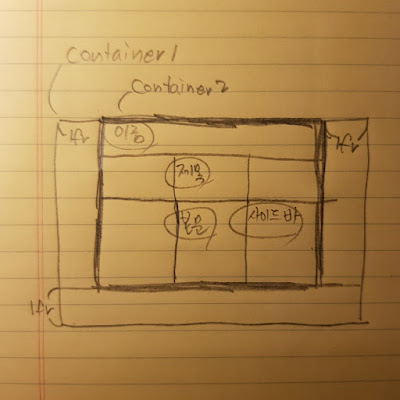 Container1
Container2
이름
1fr
1fr
제목
본문
사이드바
1fr